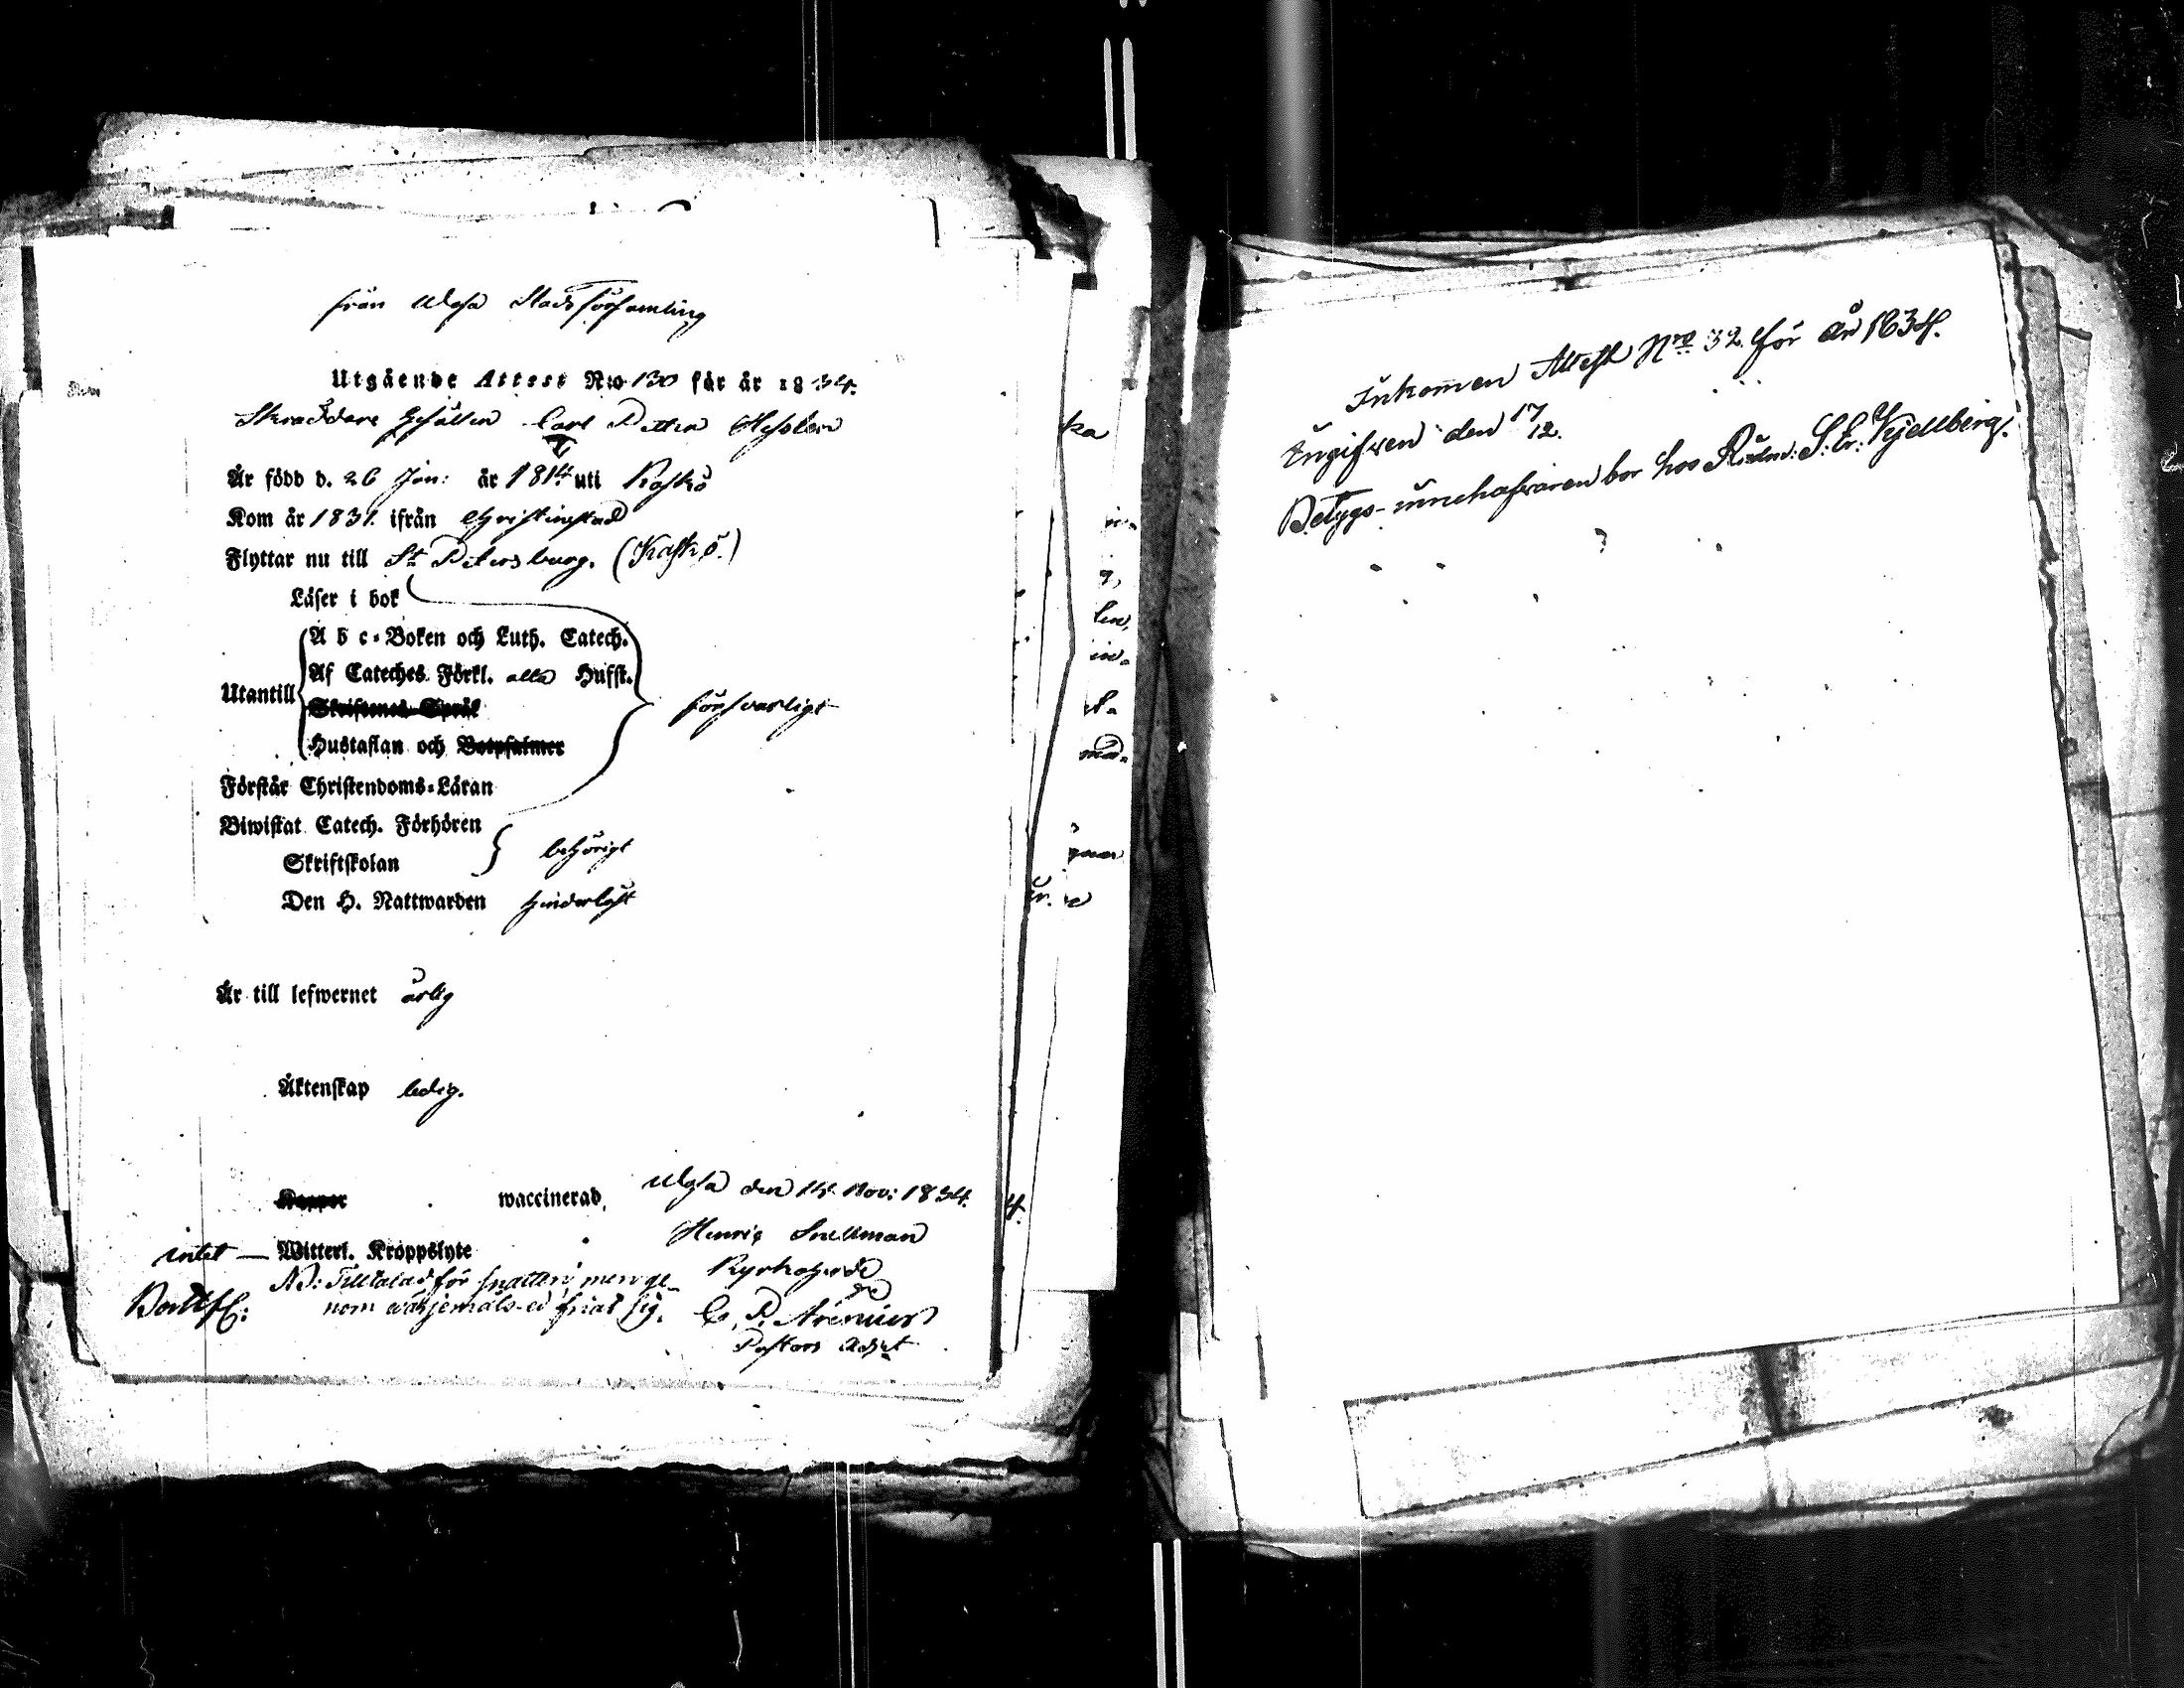 från Wasa Stads församling
Utgående Attest No 130 för år 1834.
Skräddare Gesällen Carl Petter Hessler
Är född d. 26 Jan: år 1814 uti Kaskö
Kom år 1831. ifrån Christinestad
Flyttar nu till St Petersburg. (Kaskö.)
Läser i bok
A b c-Boken och Luth. Catech.
Af Cateches. Förkl. alla Hufst.
Utantill
Skriftenes Språk
försvarligt
Hustaflan och Botpsalmer
Förstår Christendoms-Läran
Biwistat Catech. Förhören
behörigt
Skriftskolan
Den H. Nattwarden hinderlöst
Är till lefwernet ärlig
Äktenskap ledig.
Koppor waccinerad,
Wasa den 14 Nov: 1834.
Henric Snellman
intet — Witterl. Kroppslyte
Kyrkoherde
NB: Tilltalad för snatteri, men ge-
nom värjemåls-ed friat sig.
C. P. Arenius
Pastors Adj:t
Inkommen Attest Nro 32. för år 1834.
Ingifven den 17/12.
Betygs-innehafvaren bor hos Rådm: S. Er. Kjellberg.